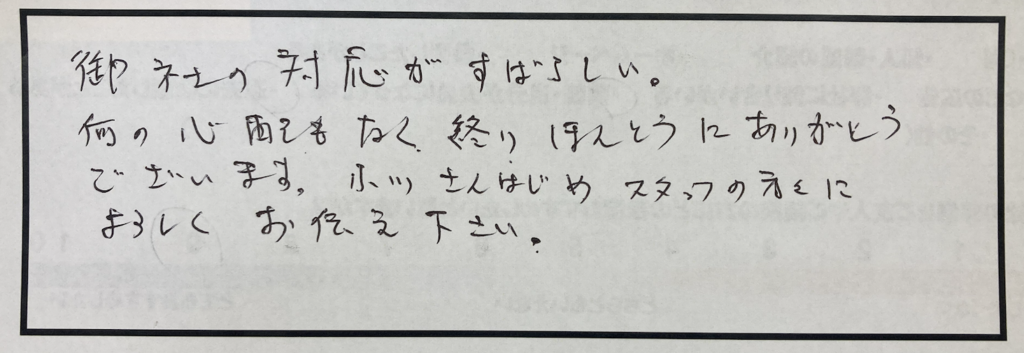 御社の対応がすばらしい。
何の心配もなく終り ほんとうにありがとう
ございます。小川さんはじめ スタッフの方々に
よろしく お伝え下さい。